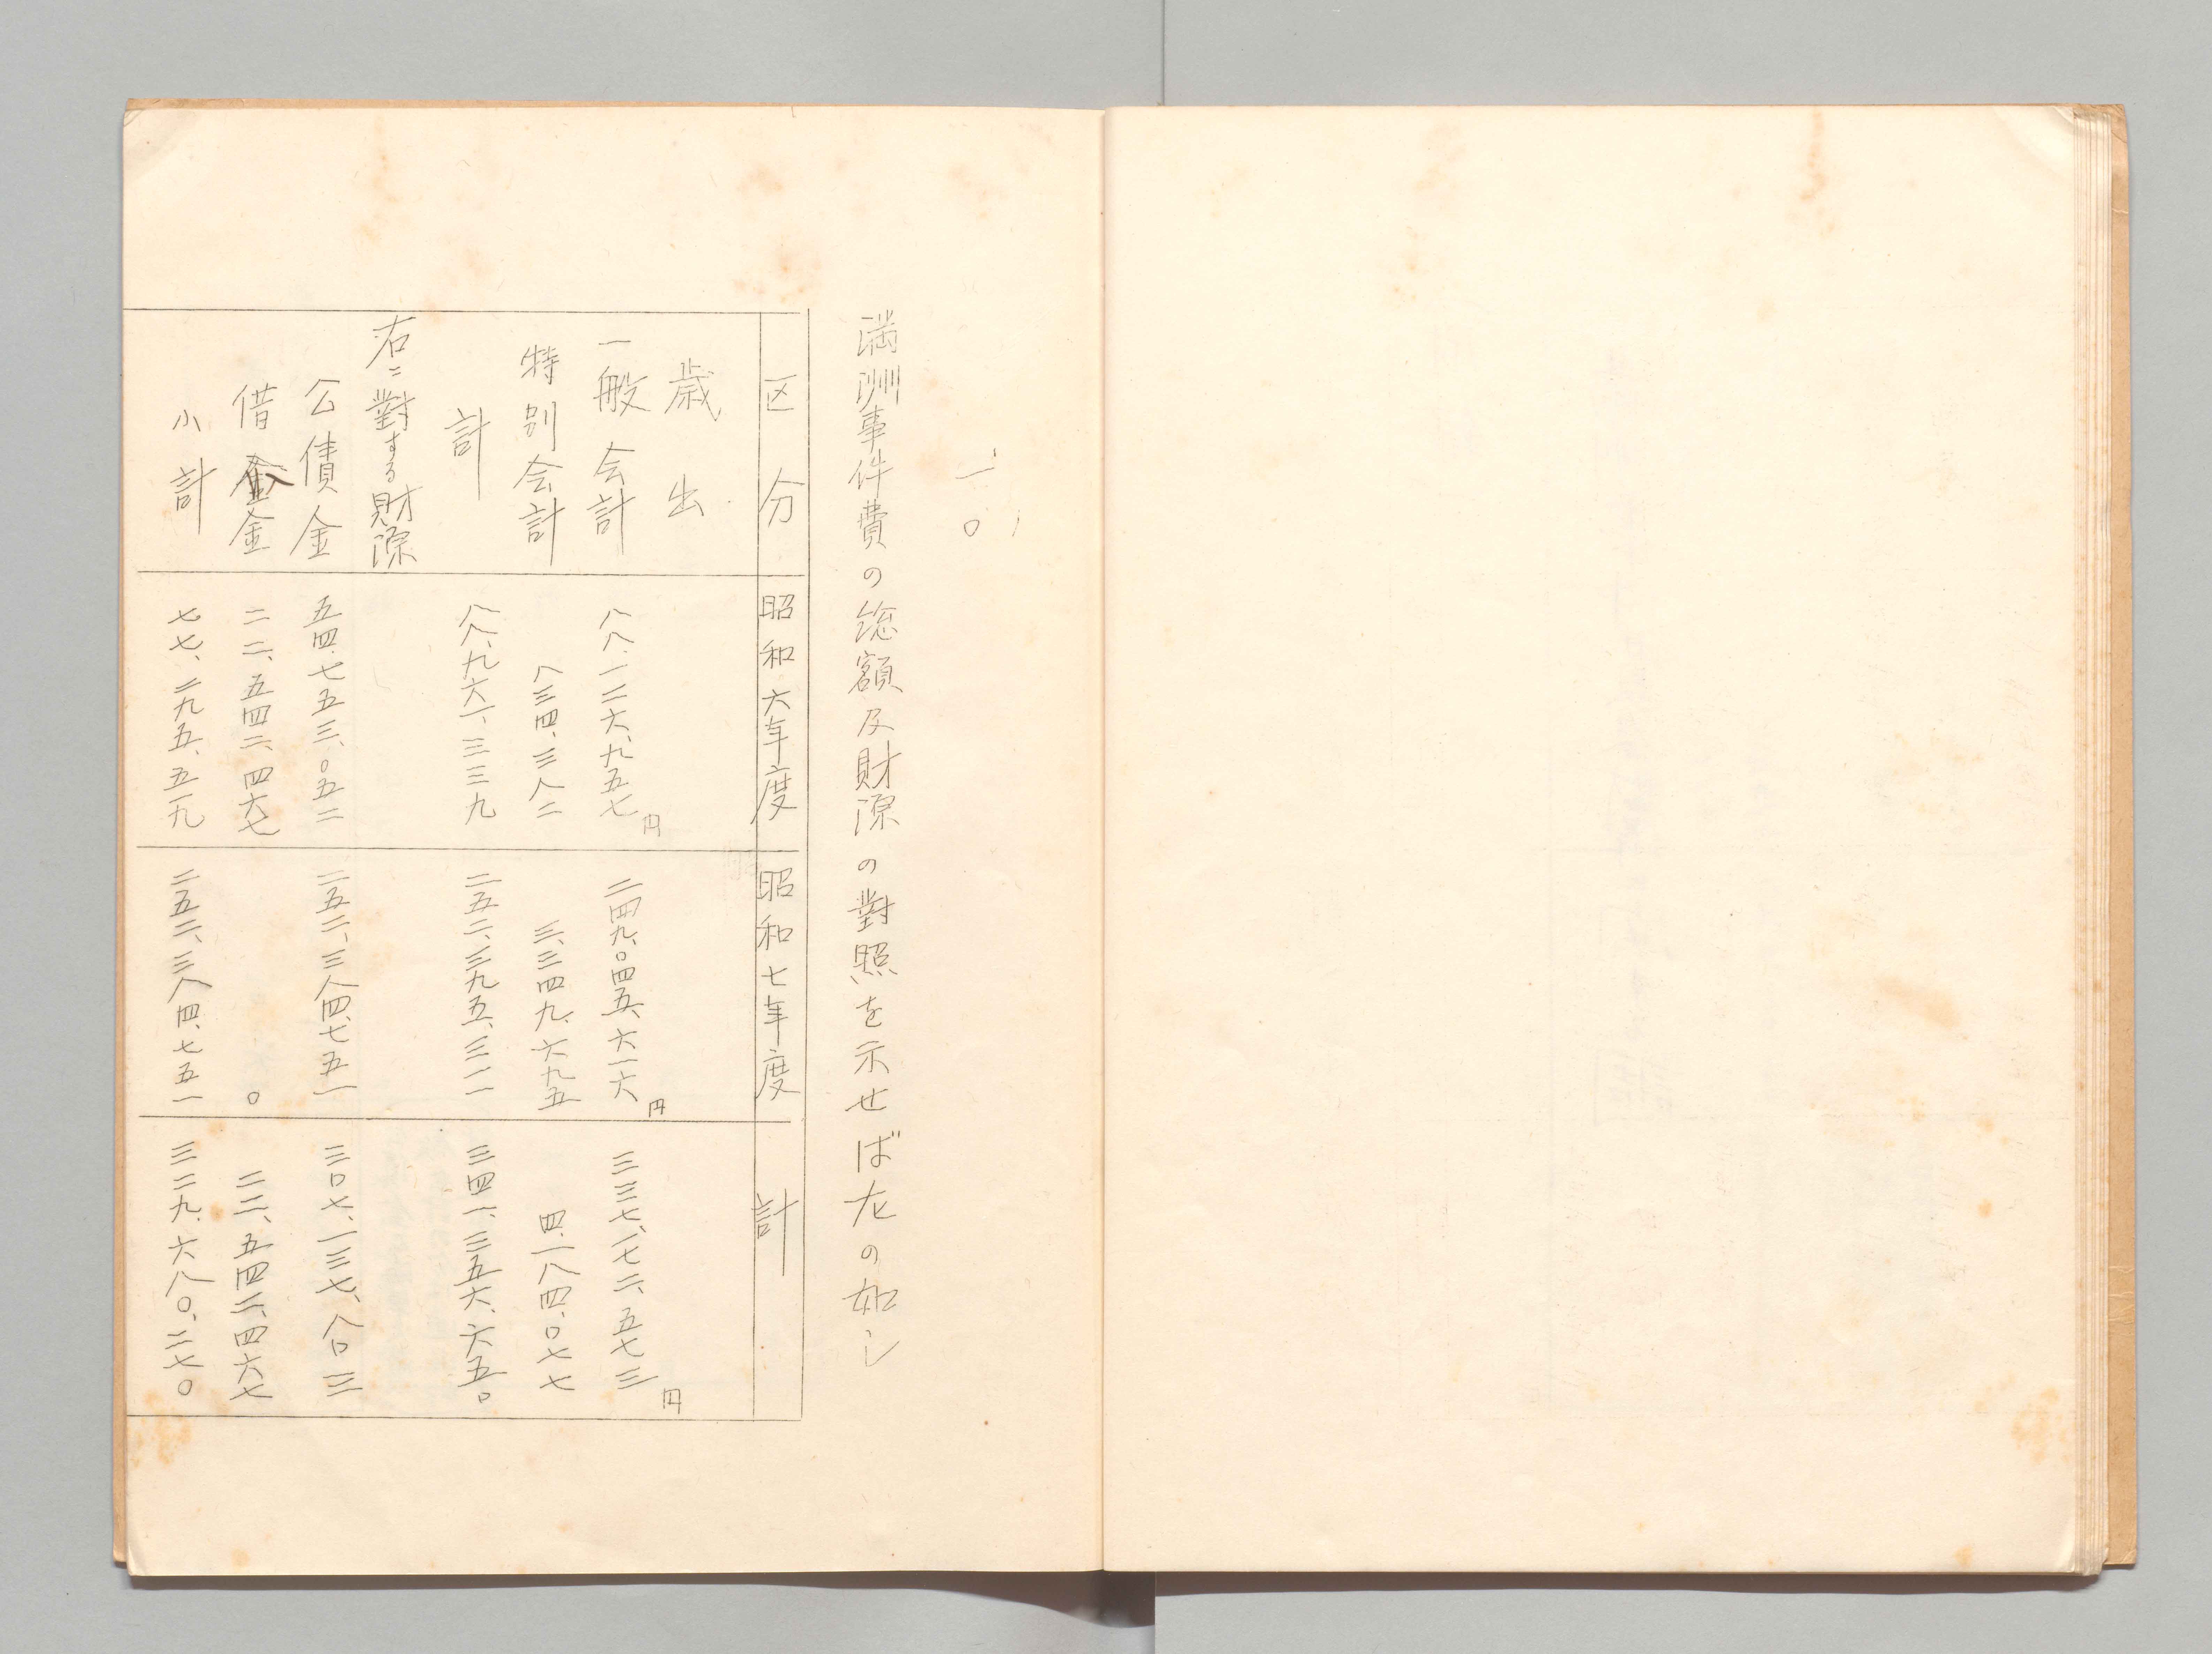 一〇
満洲事件費の総額及財源の對照を示せば左の如し
区分 昭和六年度 昭和七年度 計
歳出
一般会計 八八、一二六、九五七円 二四九、〇四五、六一六円 三三七、一七二、五七三円
特別会計 八三四、三八二 三、三四九、六九五 四、一八四、〇七七
計 八八、九六一、三三九 二五二、三九五、三一一 三四一、三五六、六五〇
右ニ對する財源
公債金 五四、七五三、〇五二 二五二、三八四、七五一 三〇七、一三七、八〇三
借入金 二二、五四二、四六七 〇 二二、五四二、四六七
小計 七七、二九五、五一九 二五二、三八四、七五一 三二九、六八〇、二七〇